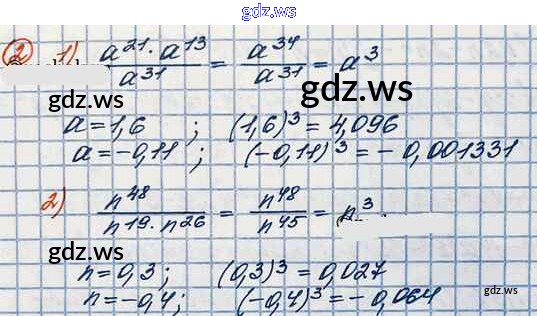 gdz.ws
② 1) a²¹ · a¹³ / a³¹ = a³⁴ / a³¹ = a³
gdz.ws
gdz.ws
a = 1,6 ; (1,6)³ = 4,096
a = -0,11 ; (-0,11)³ = -0,001331
2) n⁴⁸ / n¹⁹ · n²⁶ = n⁴⁸ / n⁴⁵ = n³
gdz.ws
n = 0,3 ; (0,3)³ = 0,027
n = -0,4 ; (-0,4)³ = -0,064
gdz.ws